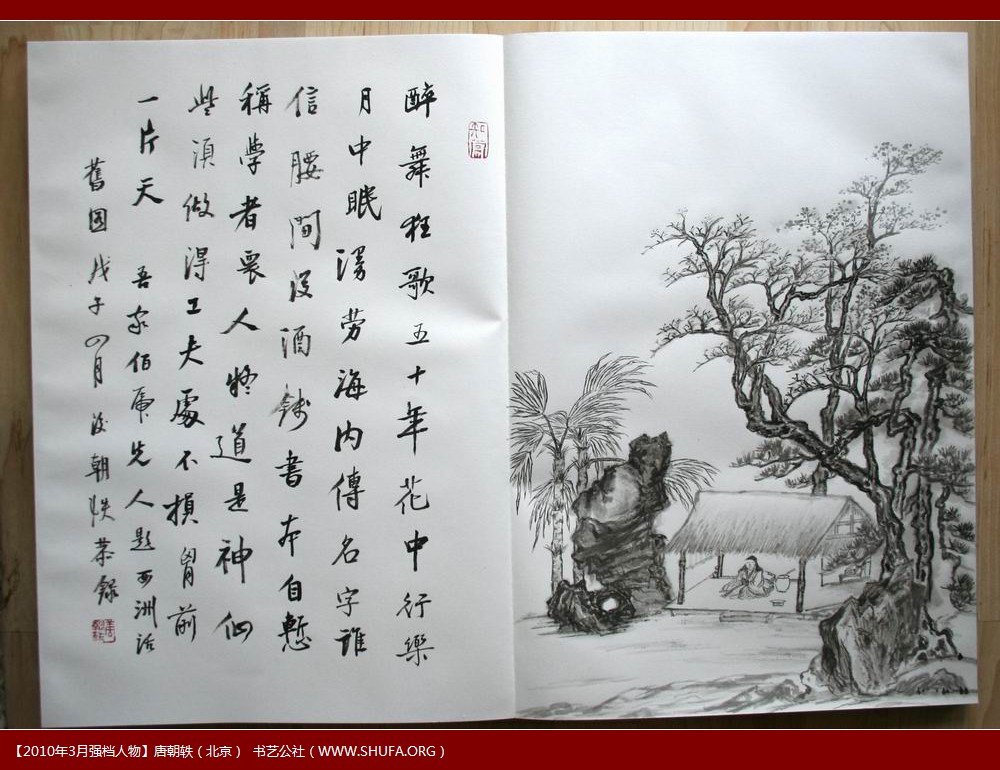 醉舞狂歌五十年花中行樂
月中眠漫勞海内傳名字誰
信腰間没酒錢書本自慙
稱學者衆人疑道是神仙
些須做得工夫處不損胷前
一片天 吾家伯虎先人題西洲話
舊圖 戊子四月後朝軼恭錄
【2010年3月强档人物】唐朝轶（北京） 书艺公社（WWW.SHUFA.ORG）